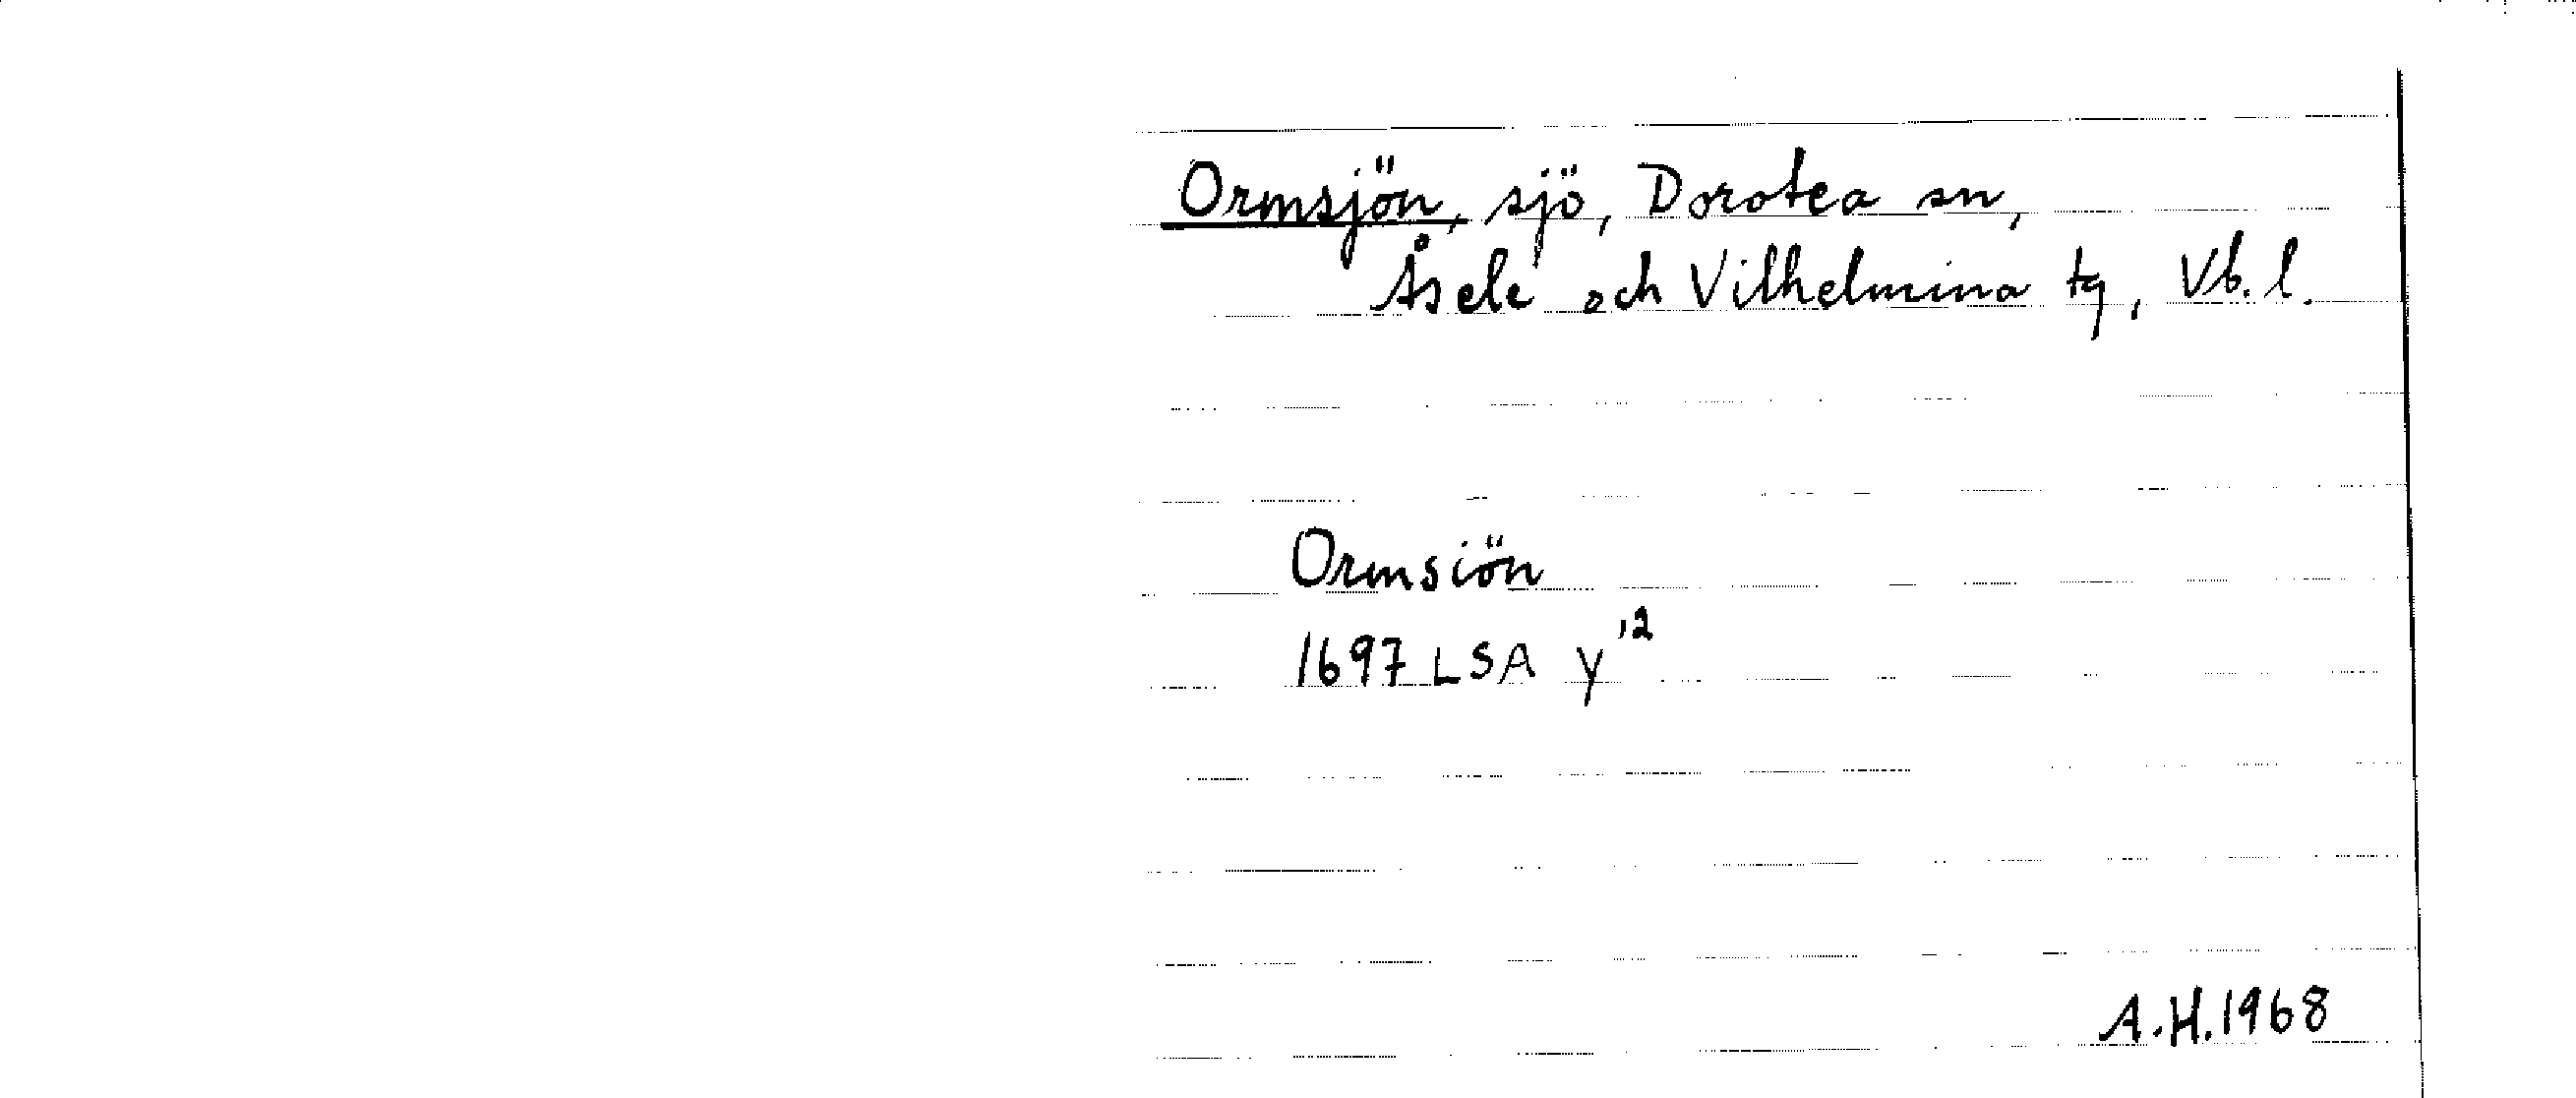 Ormsjön, sjö, Dorotea sn,
Åsele och Vilhelmina tg, Vb. l.
Ormsiön
1697 LSA Y¹²
A.H. 1968